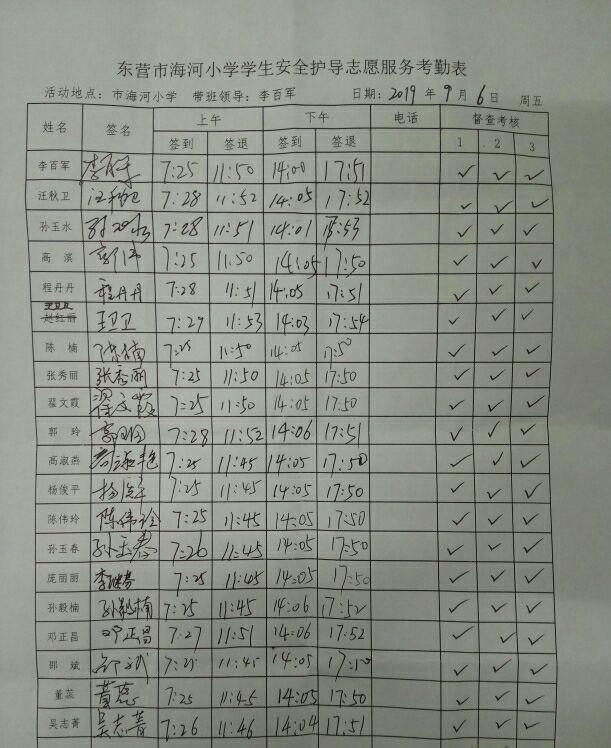 东营市海河小学学生安全护导志愿服务考勤表
活动地点：市海河小学 带班领导：李百军 日期：2019 年 9 月 6 日 周五
姓名 签名 上午 下午 电话 督查考核
签到 签退 签到 签退 1 2 3
李百军 李百军 7:25 11:50 14:00 17:51 ✓ ✓ ✓
汪秋卫 汪秋卫 7:28 11:52 14:05 17:52 ✓ ✓ ✓
孙玉水 孙玉水 7:28 11:51 14:01 17:53 ✓ ✓ ✓
高滨 7:25 11:50 14:05 17:50 ✓ ✓ ✓
程丹丹 程丹丹 7:28 11:51 14:05 17:51 ✓ ✓ ✓
王卫卫
赵红丽 王卫卫 7:29 11:53 14:03 17:54 ✓ ✓ ✓
陈楠 陈楠 7:25 11:50 14:05 17:50 ✓ ✓ ✓
张秀丽 张秀丽 7:25 11:50 14:05 17:50 ✓ ✓ ✓
翟文霞 翟文霞 7:25 11:50 14:05 17:50 ✓ ✓ ✓
郭玲 7:28 11:52 14:06 17:51 ✓ ✓ ✓
高淑燕 高淑艳 7:25 11:45 14:05 17:50 ✓ ✓ ✓
杨俊平 杨俊平 7:25 11:45 14:05 17:50 ✓ ✓ ✓
陈伟玲 陈伟玲 7:25 11:45 14:05 17:50 ✓ ✓ ✓
孙玉春 孙玉春 7:26 11:45 14:05 17:50 ✓ ✓ ✓
庞丽丽 7:25 11:45 14:05 17:50 ✓ ✓ ✓
孙毅楠 孙毅楠 7:25 11:45 14:06 17:52 ✓ ✓ ✓
邓正昌 邓正昌 7:27 11:51 14:06 17:52 ✓ ✓ ✓
邵斌 邵斌 7:25 11:45 14:05 17:50 ✓ ✓ ✓
董蕊 董蕊 7:25 11:45 14:05 17:50 ✓ ✓ ✓
吴志菁 吴志菁 7:26 11:46 14:04 17:51 ✓ ✓ ✓